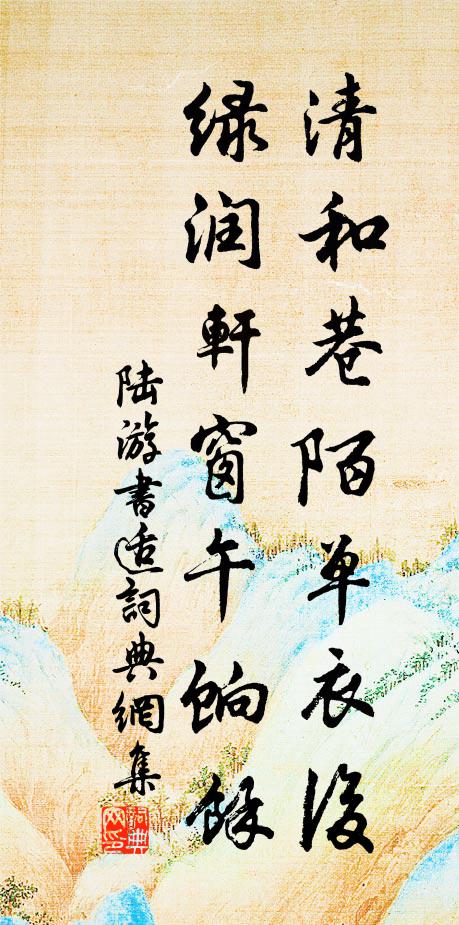 清和巷陌单衣後
绿润軒窗午餉餘
陆游書适詞典網集
詞典
网印